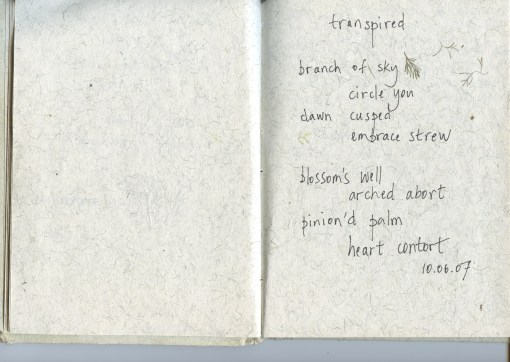 transpired
branch of sky
circle you
dawn cusped
embrace strew
blossom's well
arched abort
pinion'd palm
heart contort
10.06.07